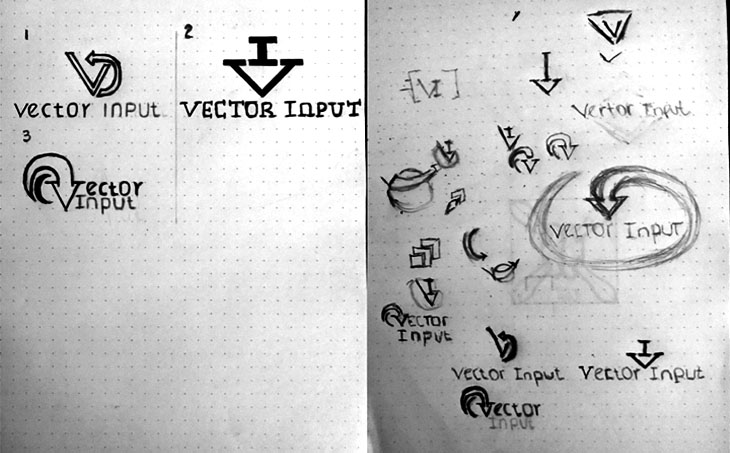 1
2
I
V
Vector Input
VECTOR INPUT
3
Vector
Input
V
[VI]
I
Vertor Input
I
I
VECTOR INPUT
I
VECTOR
INPUT
I
Vector Input
VECTOR INPUT
Vector
Input